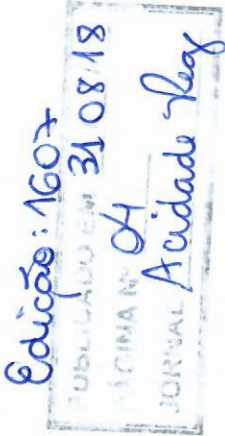 Edição: 1607
PUBLICADO EM 31 08 18
PÁGINA Nº 04
JORNAL A cidade Reg